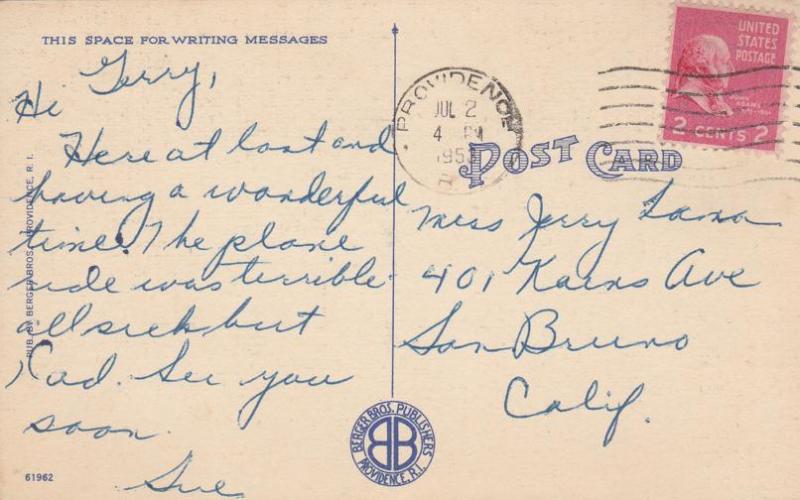 THIS SPACE FOR WRITING MESSAGES
Hi Gerry,
Here at last and
having a wonderful
time. The plane
ride was terrible
all sick but
Rad. See you
soon.
Sue
PUB. BY BERGER BROS., PROVIDENCE, R. I.
61962
PROVIDENCE
JUL 2
4 PM
1953
R
UNITED
STATES
POSTAGE
ADAMS
2 CENTS 2
POST CARD
Miss Jerry Lama
401 Kains Ave
San Bruno
Calif.
BERGER BROS. PUBLISHERS
BB
PROVIDENCE, R.I.